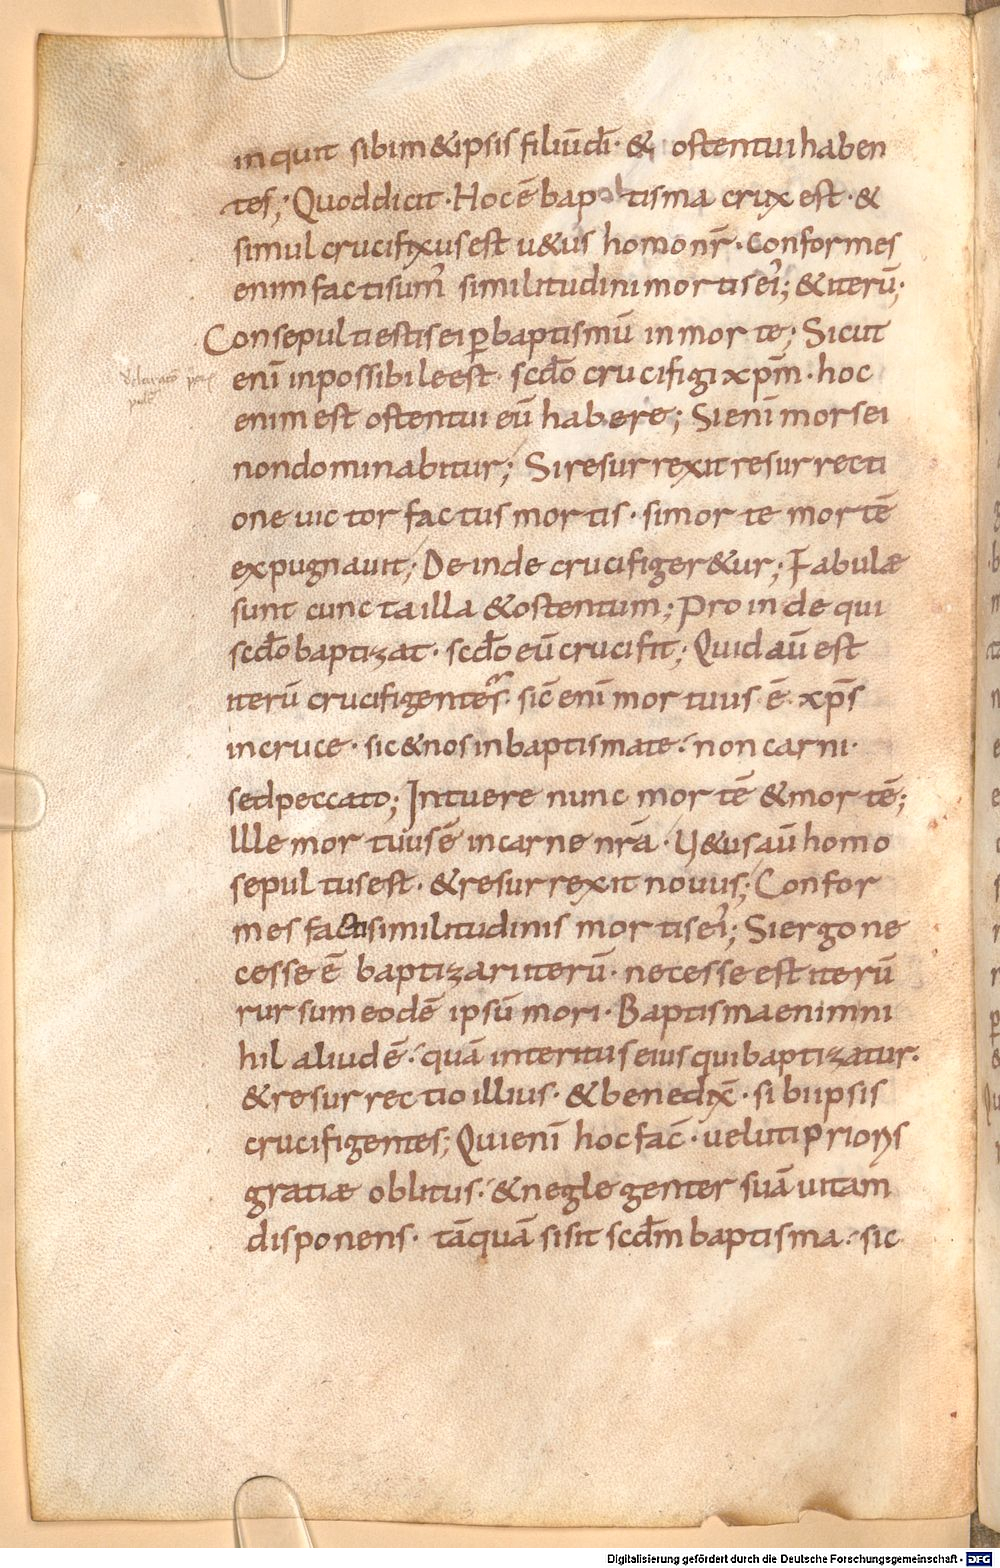 inquit sibim&ipsis filiū dī· & ostentui haben
tes; Quod dicit· Hoc ē baptisma crux est· &
simul crucifixus est u&us homo nr̄· Conformes
enim facti sum̄ similitudini mortis ei; & iterū;
Consepulti estis ei ꝑ baptismū in morte; Sicut
enī inpossibile est· scd̄o crucifigi xp̄m· hoc
enim est ostentui eū habere; Si enī mors ei
non dominabitur; Si resurrexit resurrecti
one uictor factus mortis· si morte mortē
expugnauit; Deinde crucifiger&ur; Fabulæ
sunt cuncta illa & ostentum; Proinde qui
scd̄o baptizat· scd̄o eū crucifit; Quid aū est
iterū crucifigentes· sic enī mortuus ē xp̄s
in cruce· sic & nos in baptismate· non carni·
sed peccato; Intuere nunc mortē & mortē;
Ille mortuus ē in carne nrā· U&us aū homo
sepultus est· & resurrexit nouus; Confor
mes facti similitudinis mortis ei; Si ergo ne
cesse ē baptizari iterū· necesse est iterū
rursum eodē ipsū mori· Baptisma enim ni
hil aliud ē· quā interitus eius qui baptizatur·
& resurrectio illius· & bene dix̄· sibi ipsis
crucifigentes; Qui enī hoc fac̄· uelut prioris
gratiæ oblitus· & neglegenter suā uitam
disponens· tāquā si sit scd̄m baptisma· sic